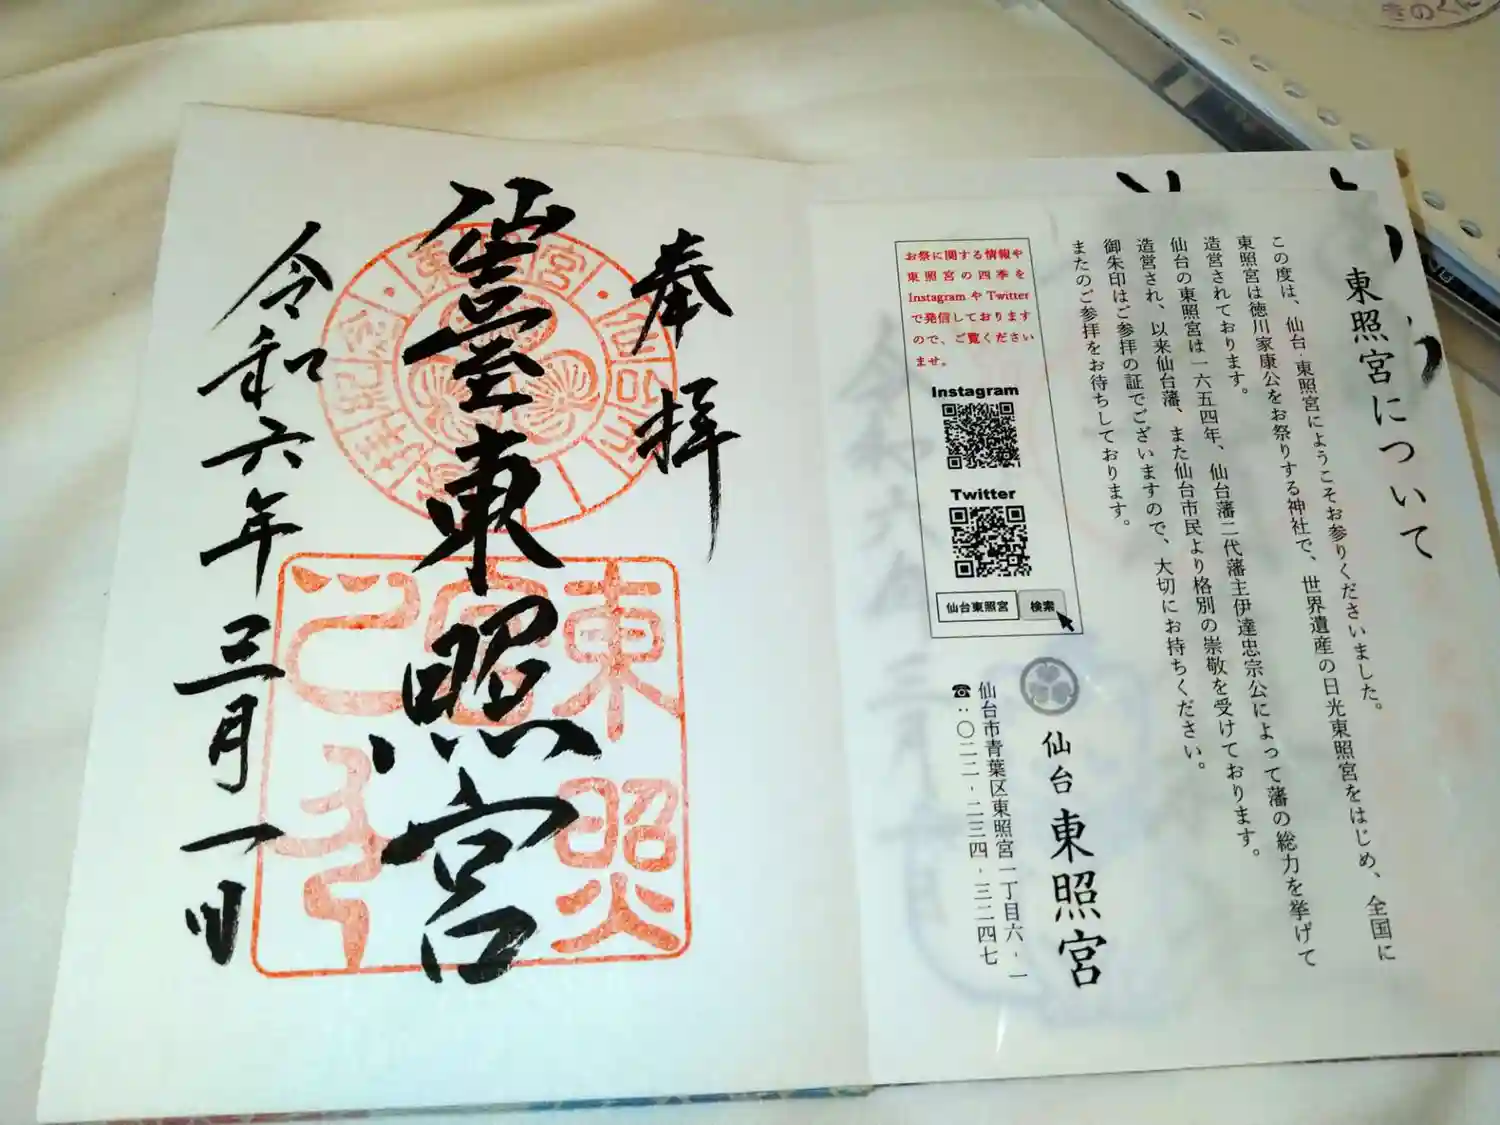 東照宮について
この度は、仙台・東照宮にようこそお参りくださいました。
東照宮は徳川家康公をお祭りする神社で、世界遺産の日光東照宮をはじめ、全国に
造営されております。
仙台の東照宮は一六五四年、仙台藩二代藩主伊達忠宗公によって藩の総力を挙げて
造営され、以来仙台藩、また仙台市民より格別の崇敬を受けております。
御朱印はご参拝の証でございますので、大切にお持ちください。
またのご参拝をお待ちしております。
お祭に関する情報や
東照宮の四季を
InstagramやTwitter
で発信しております
ので、ご覧ください
ませ。
Instagram
Twitter
仙台東照宮 検索
仙台 東照宮
仙台市青葉区東照宮一丁目六-一
☎:〇二二-二三四-三二四七
奉拝
仙臺東照宮
令和六年三月一日
東照宮